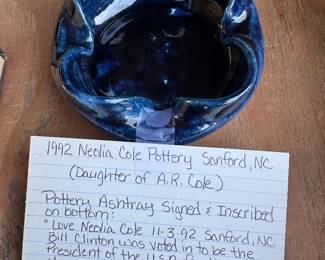 1992 Neolia Cole Pottery Sanford, NC
(Daughter of A.R. Cole)
Pottery Ashtray Signed & Inscribed
on bottom:
"Love Neolia Cole 11-3-92 Sanford, NC
Bill Clinton was voted in to be the
President of the U.S.A.